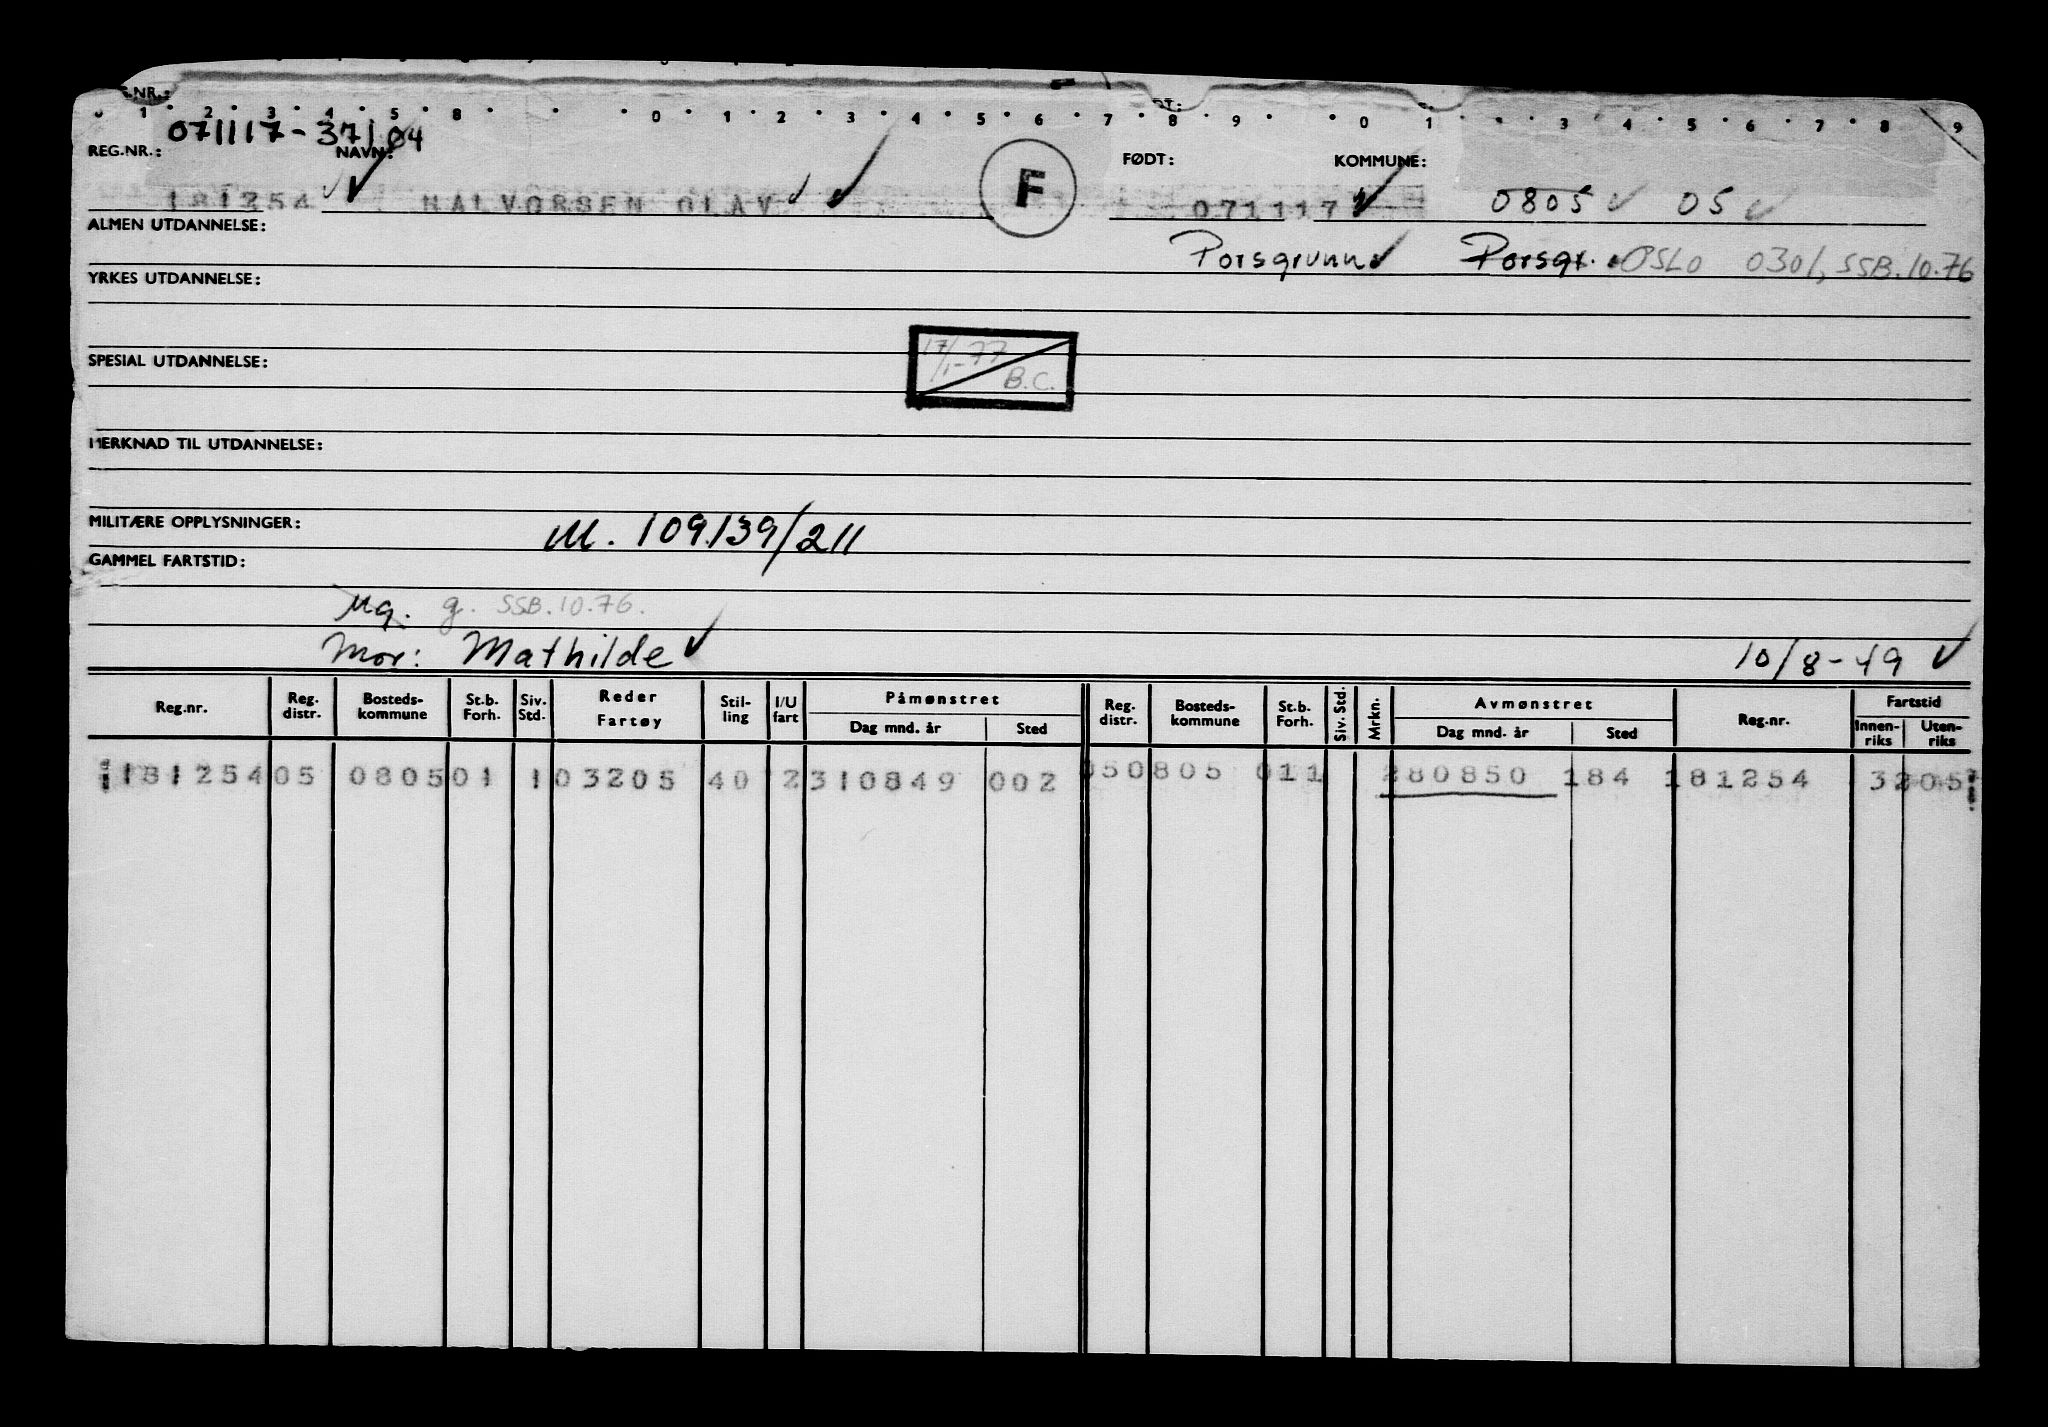 .NR.: DT:
0 1 2 3 4 5 8 0 1 2 3 4 5 6 7 8 9 0 1 3 4 5 6 7 8 9
071117-37104
REG.NR.: NAVN: F FØDT: KOMMUNE:
181254 HALVORSEN OLAV 071117 0805 05
ALMEN UTDANNELSE: Porsgrunn Porsgr. OSLO 0301, SSB.10.76
YRKES UTDANNELSE:
17/1-77
SPESIAL UTDANNELSE: B.C.
MERKNAD TIL UTDANNELSE:
MILITÆRE OPPLYSNINGER: M. 109139/211
GAMMEL FARTSTID:
Ug. g. SSB.10.76.
Mor: Mathilde 10/8-49
Reg.nr. Reg. distr. Bosteds-kommune St.b. Forh. Siv. Std. Reder Fartøy Stil-ling I/U fart Påmønstret Dag mnd. år Sted Reg. distr. Bosteds-kommune St.b. Forh. Siv. Std. Mrkn. Avmønstret Dag mnd. år Sted Reg.nr. Fartstid Innen-riks Uten-riks
181254 05 0805 01 1 03205 40 2 310849 002 050805 011 280850 184 181254 3205